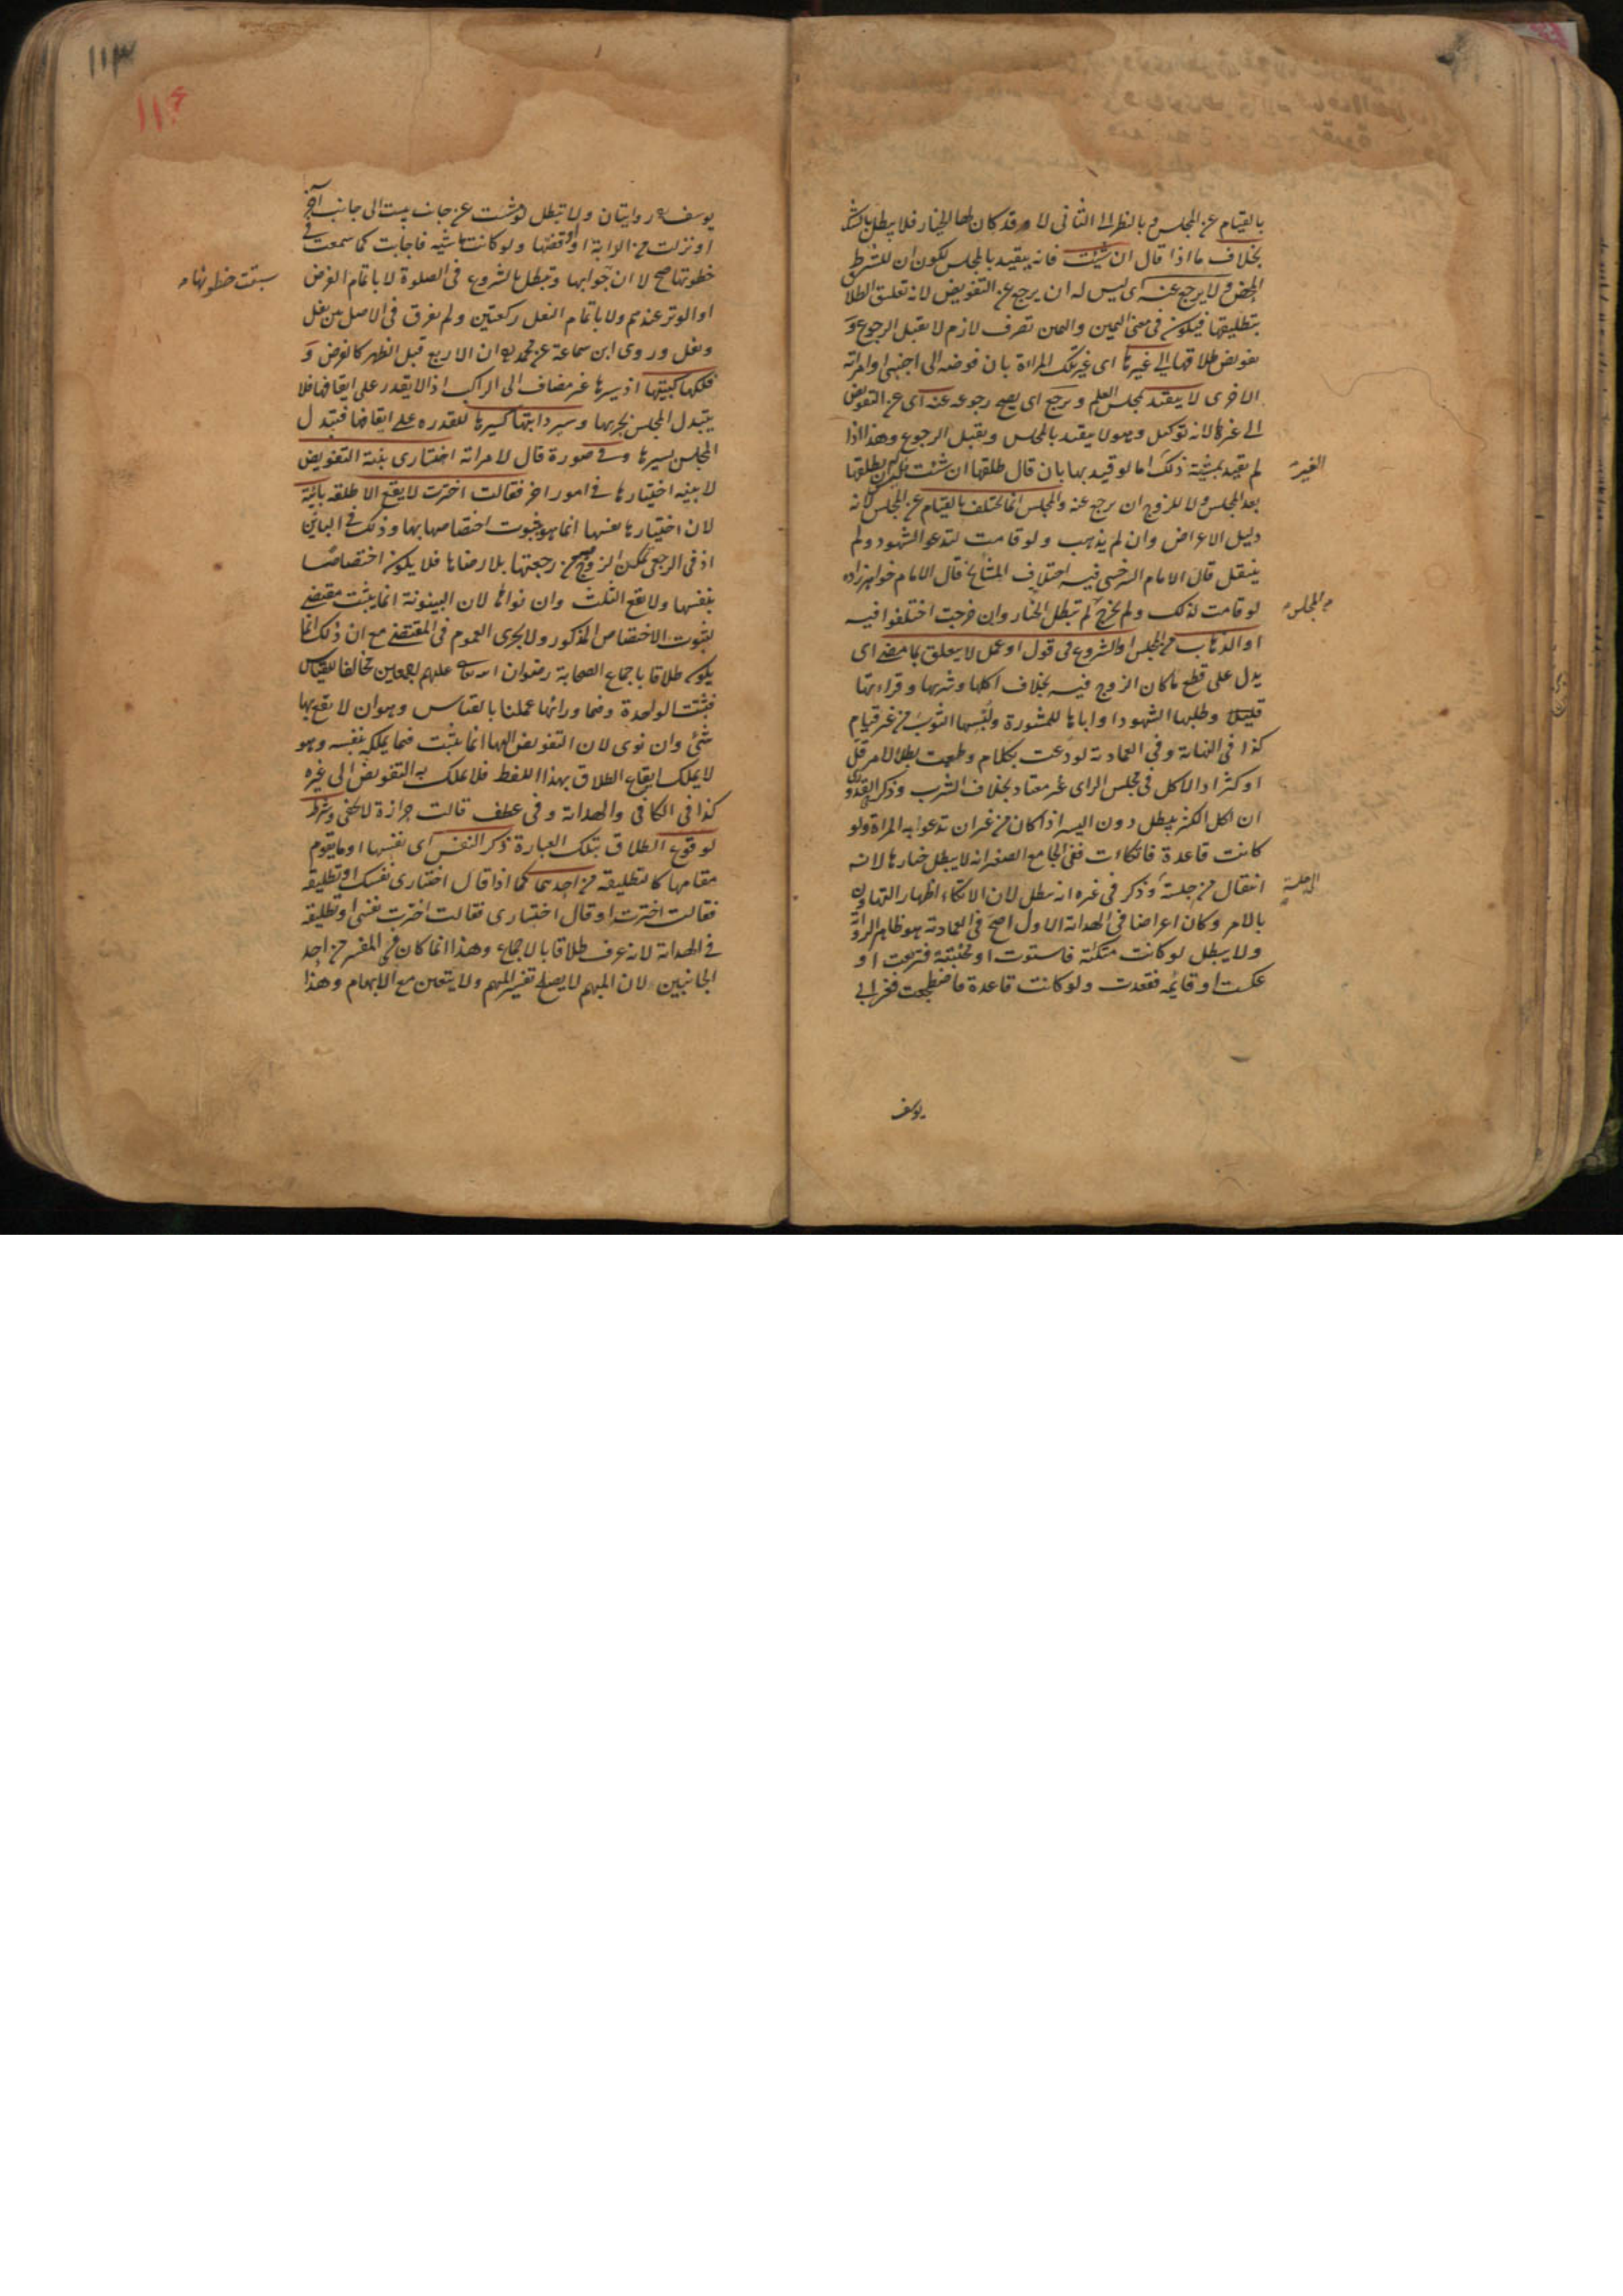 بالقيام عن المجلس وبالنظر الى الثاني لا وقد كان لها الخيار فلا يبطل بالشك
بخلاف ما اذا قال ان شئت فانه يتقيد بالمجلس لكون ان للشرط
المحض ولا يرجع عنه اى ليس له ان يرجع عن التفويض لانه تعليق الطلا
بتطليقها فيكون فى معنى اليمين واليمين تصرف لازم لا يقبل الرجوع و
تفويض طلاقها الى غيرها اى غير تلك المراة بان فوضه الى اجنبى او امراته
الاخرى لا يتقيد بمجلس العلم ويرجع اى يصح رجوعه عنه اى عن التفويض
الى غيرها لانه توكيل وهو لا يتقيد بالمجلس ويقبل الرجوع وهذا اذا
لم يقيد بمشية ذلك اما لو قيد بها بان قال طلقها ان شئت ليس ان يطلقها
الغير
بعد المجلس ولا للزوج ان يرجع عنه والمجلس انما يختلف بالقيام عن المجلس لانه
دليل الاعراض وان لم يذهب ولو قامت لتدعو الشهود ولم
ينتقل قال الامام السرخسى فيه اختلاف المشايخ قال الامام خواهرزاده
لو قامت لذلك ولم تخرج لم تبطل الخيار وان خرجت اختلفوا فيه
من المجلس
او الذهاب من المجلس او الشروع فى قول او عمل لا يتعلق بما مضى اى
يدل على قطع ما كان الزوج فيه بخلاف اكلها وشربها وقراءتها
قليلا وطلبها الشهود او اباها للمشورة ولبسها الثوب من غير قيام
كذا فى النهاية وفى العمادية لو دعت بكلام وطعمت بطل الامر قل
او كثر اذ الاكل فى مجلس الراى غير معتاد بخلاف الشرب وذكر القدورى
ان اكل الكثير يبطل دون اليسير اذا كان من غير ان تدعوا به المراة ولو
كانت قاعدة فاتكات ففى الجامع الصغير انه لا يبطل خيارها لانه
انتقال من جلسة وذكر فى غيره انه يبطل لان الاتكاء اظهار التهاون
الى جلسة
بالامر وكان اعراضا فى الهداية الاول اصح فى العمادية هو ظاهر الرواية
ولا يبطل لو كانت متكئة فاستوت او محتبية فتربعت او
عكست او قائمه فقعدت ولو كانت قاعدة فاضطجعت فعن ابى
يوسف
١١٣
١١٤
يوسف روايتان ولا تبطل لو مشت من جانب بيت الى جانب آخر
او نزلت من الدابة او اوقفتها ولو كانت ماشية فاجابت كما سمعت فى
خطوتها صح لا ان جوابها وتبطل بالشروع فى الصلوة لا باتمام الفرض
سبقت خطوتها
او الوتر عندهم ولا باتمام النفل ركعتين ولم يفرق فى الاصل بين نفل
ونفل وروى ابن سماعة عن محمد ان الاربع قبل الظهر كالفرض و
فلكها كبيتها اذ سيرها غير مضاف الى الراكب اذ لا يقدر على ايقافها فلا
يتبدل المجلس بجريها وسير دابتها كسيرها للقدرة على ايقافها فتبدل
المجلس بسيرها وفى صورة قال لامراته اختارى بنية التفويض
لا بنية اختيارها فى امور اخر فقالت اخترت لا يقع الا طلقة بائنة
لان اختيارها نفسها انما هو بثبوت اختصاصها بها وذلك فى البائن
اذ فى الرجعى تمكن الزوج من رجعتها بلا رضاها فلا يكون اختصاصا
بنفسها ولا يقع الثلث وان نواها لان البينونة انما يثبت مقتضى
لثبوت الاختصاص المذكور ولا يجرى العموم فى المقتضى مع ان ذلك انما
يكون طلاقا باجماع الصحابة رضوان الله تعالى عليهم اجمعين مخالفا للقياس
فبثبت الواحدة وفيما ورائها عملنا بالقياس وهو ان لا يقع بها
شئ وان نوى لان التفويض اليها انما يثبت فيما يملكه بنفسه وهو
لا يملك ايقاع الطلاق بهذا اللفظ فلا يملك به التفويض الى غيره
كذا فى الكافى والهداية وفى عطف قالت حزازة لا تخفى وشرط
لوقوع الطلاق بتلك العبارة ذكر النفس اى نفسها او ما يقوم
مقامها كالتطليقة من احدهما كما اذا قال اختارى نفسك او تطليقة
فقالت اخترت او قال اختارى فقالت اخترت نفسى او تطليقة
فى الهداية لانه عرف طلاقا بالاجماع وهذا انما كان فى المفسر من احد
الجانبين لان المبهم لا يصلح تفسير المبهم ولا يتعين مع الابهام وهذا